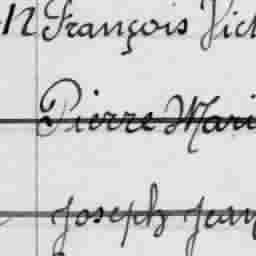 12 François Vict
Pierre Mari
Joseph Jean